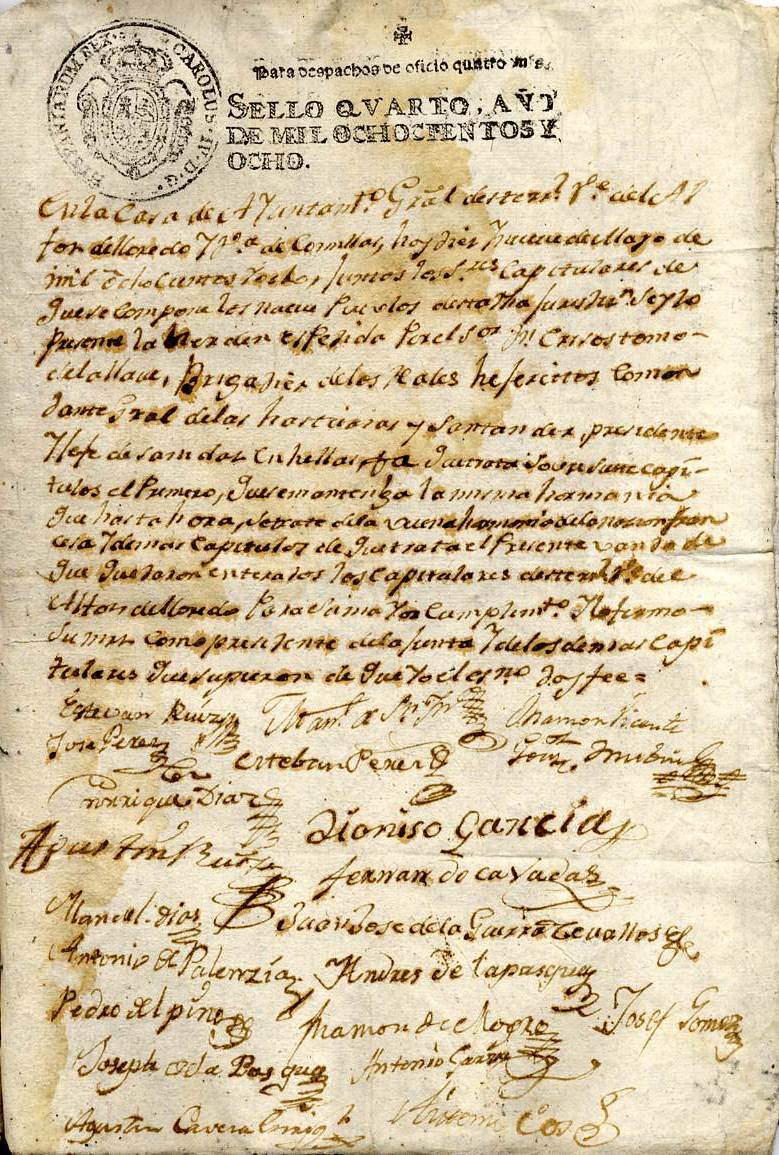 HISPANIARUM REX. CAROLUS. IV. D. G.
Para despachos de oficio quatro mrs.
SELLO QVARTO, AÑO
DE MIL OCHOCIENTOS Y
OCHO.
En la Casa de Aiuntamto. Gral deste Rl. Ve. del Al
foz de lloredo Yª de Comillas, hoy diez Y nueve de Mayo de
mil Ocho Cientos Y ocho, Juntos los Sres Capitulares de
que se Compone los nueve Pueblos desta dha Jurisdin. Se yzo
Presente la Horden espedida Por el Sor Jn. Crisostomo
de la llave, Brigadier de los Reales hejercitos Coman
dante Gral de las hasturias y Santander, presidente
Y Jefe de sanidad en hellas, que trata sobre siete Capi-
tulos el Primero, que se mantenga la misma harmonia
que hasta hora, se trate de la buena harmonia de la nacion fran
cesa Y demas Capitulos de que trata el Presente vando de
que quedaron enterados los Capitulares deste Rl. Ve. del
Alfoz de lloredo Para su maYor Cumplimto. Y lo firmo
su mrd como presidente de la Junta Y de los demas Capi
tulares que supieron de que Yo el esno. doy fee=
Estevan Ruiz Ramon Vicente
Jose Perez Esteban Perez
Enrrique Diaz
Dioniso Garcia
Agustin Ruiz
fernando cavadas
Manuel Dias Juan Jose de la Guerra Cevallos
Antonio de Palenzia Andres de la pasqua
Pedro del pino Ramon de Mogro Josef Gomez
Joseph de la Pasqua Antonio Garcia
Agustin Cavera Cos